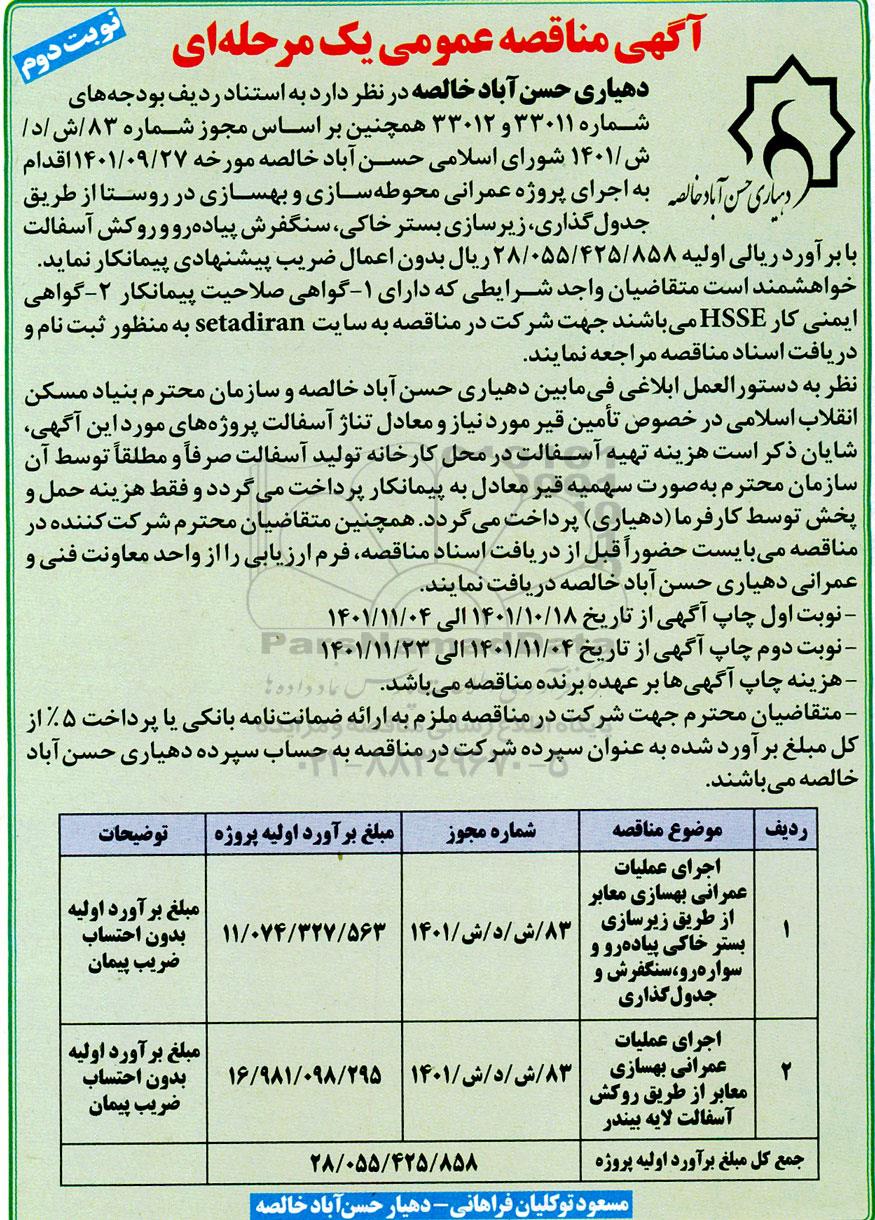 نوبت دوم
آگهی مناقصه عمومی یک مرحله‌ای
دهیاری حسن آباد خالصه
دهیاری حسن آباد خالصه در نظر دارد به استناد ردیف بودجه‌های
شماره ۳۳۰۱۱ و ۳۳۰۱۲ همچنین بر اساس مجوز شماره ۸۳/ش/د/
ش/۱۴۰۱ شورای اسلامی حسن آباد خالصه مورخه ۱۴۰۱/۰۹/۲۷ اقدام
به اجرای پروژه عمرانی محوطه‌سازی و بهسازی در روستا از طریق
جدول‌گذاری، زیرسازی بستر خاکی، سنگفرش پیاده‌رو و روکش آسفالت
با برآورد ریالی اولیه ۲۸/۰۵۵/۴۲۵/۸۵۸ ریال بدون اعمال ضریب پیشنهادی پیمانکار نماید.
خواهشمند است متقاضیان واجد شرایطی که دارای ۱-گواهی صلاحیت پیمانکار ۲-گواهی
ایمنی کار HSSE می‌باشند جهت شرکت در مناقصه به سایت setadiran به منظور ثبت نام و
دریافت اسناد مناقصه مراجعه نمایند.
نظر به دستورالعمل ابلاغی فی‌مابین دهیاری حسن آباد خالصه و سازمان محترم بنیاد مسکن
انقلاب اسلامی در خصوص تأمین قیر مورد نیاز و معادل تناژ آسفالت پروژه‌های مورد این آگهی،
شایان ذکر است هزینه تهیه آسفالت در محل کارخانه تولید آسفالت صرفاً و مطلقاً توسط آن
سازمان محترم به‌صورت سهمیه قیر معادل به پیمانکار پرداخت می‌گردد و فقط هزینه حمل و
پخش توسط کارفرما (دهیاری) پرداخت می‌گردد. همچنین متقاضیان محترم شرکت‌کننده در
مناقصه می‌بایست حضوراً قبل از دریافت اسناد مناقصه، فرم ارزیابی را از واحد معاونت فنی و
عمرانی دهیاری حسن آباد خالصه دریافت نمایند.
- نوبت اول چاپ آگهی از تاریخ ۱۴۰۱/۱۰/۱۸ الی ۱۴۰۱/۱۱/۰۴
- نوبت دوم چاپ آگهی از تاریخ ۱۴۰۱/۱۱/۰۴ الی ۱۴۰۱/۱۱/۲۳
- هزینه چاپ آگهی‌ها بر عهده برنده مناقصه می‌باشد.
- متقاضیان محترم جهت شرکت در مناقصه ملزم به ارائه ضمانت‌نامه بانکی یا پرداخت ۵٪ از
کل مبلغ برآورد شده به عنوان سپرده شرکت در مناقصه به حساب سپرده دهیاری حسن آباد
خالصه می‌باشند.
ParsNamadData
پایگاه اطلاع رسانی مناقصه و مزایده
۰۲۱-۸۸۳۴۹۶۷۰-۵
ردیف موضوع مناقصه شماره مجوز مبلغ برآورد اولیه پروژه توضیحات
۱
اجرای عملیات
عمرانی بهسازی معابر
از طریق زیرسازی
بستر خاکی پیاده‌رو و
سواره‌رو،سنگفرش و
جدول‌گذاری
۸۳/ش/د/ش/۱۴۰۱
۱۱/۰۷۴/۳۲۷/۵۶۳
مبلغ برآورد اولیه
بدون احتساب
ضریب پیمان
۲
اجرای عملیات
عمرانی بهسازی
معابر از طریق روکش
آسفالت لایه بیندر
۸۳/ش/د/ش/۱۴۰۱
۱۶/۹۸۱/۰۹۸/۲۹۵
مبلغ برآورد اولیه
بدون احتساب
ضریب پیمان
جمع کل مبلغ برآورد اولیه پروژه ۲۸/۰۵۵/۴۲۵/۸۵۸
مسعود توکلیان فراهانی - دهیار حسن‌آباد خالصه